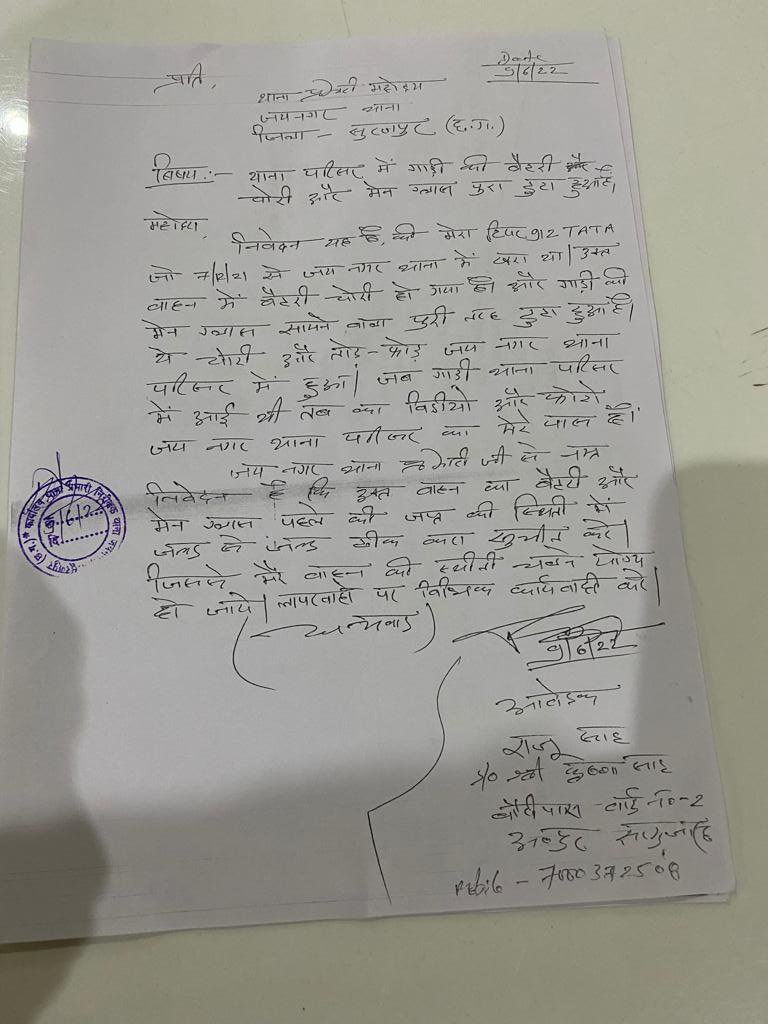 Date
9/6/22
प्रति,
थाना प्रभारी महोदय
जयनगर थाना
जिला - सुरजपुर (छ.ग.)
विषय :- थाना परिसर में गाड़ी की बैटरी
चोरी और मेन ग्लास पुरा टुटा हुआ है।
महोदय,
निवेदन यह है, की मेरा टिपर 912 TATA
जो 7/12/21 से जय नगर थाना में खरा था। उक्त
वाहन में बैटरी चोरी हो गया है और गाड़ी की
मेन ग्लास सामने वाला पुरी तरह टुटा हुआ है।
ये चोरी और तोड़-फोड़ जय नगर थाना
परिसर में हुआ। जब गाड़ी थाना परिसर
में आई थी तब का विडीयो और फोटो
जय नगर थाना परिसर का मेरे पास है।
जय नगर थाना प्रभारी जी से नम्र
निवेदन है कि उक्त वाहन का बैटरी और
मेन ग्लास पहले की जप्त की स्थिती में
जल्द से जल्द ठीक करा सुनीत करे।
जिससे मेरे वाहन की स्थीती चलने योग्य
हो जाये। लापरवाहो पर विभिन्न कार्यवाही करे।
(धन्यवाद)
9/6/22
आवेदक
राजु साह
S/o श्री कृष्णा साह
बौरीपारा वार्ड No-2